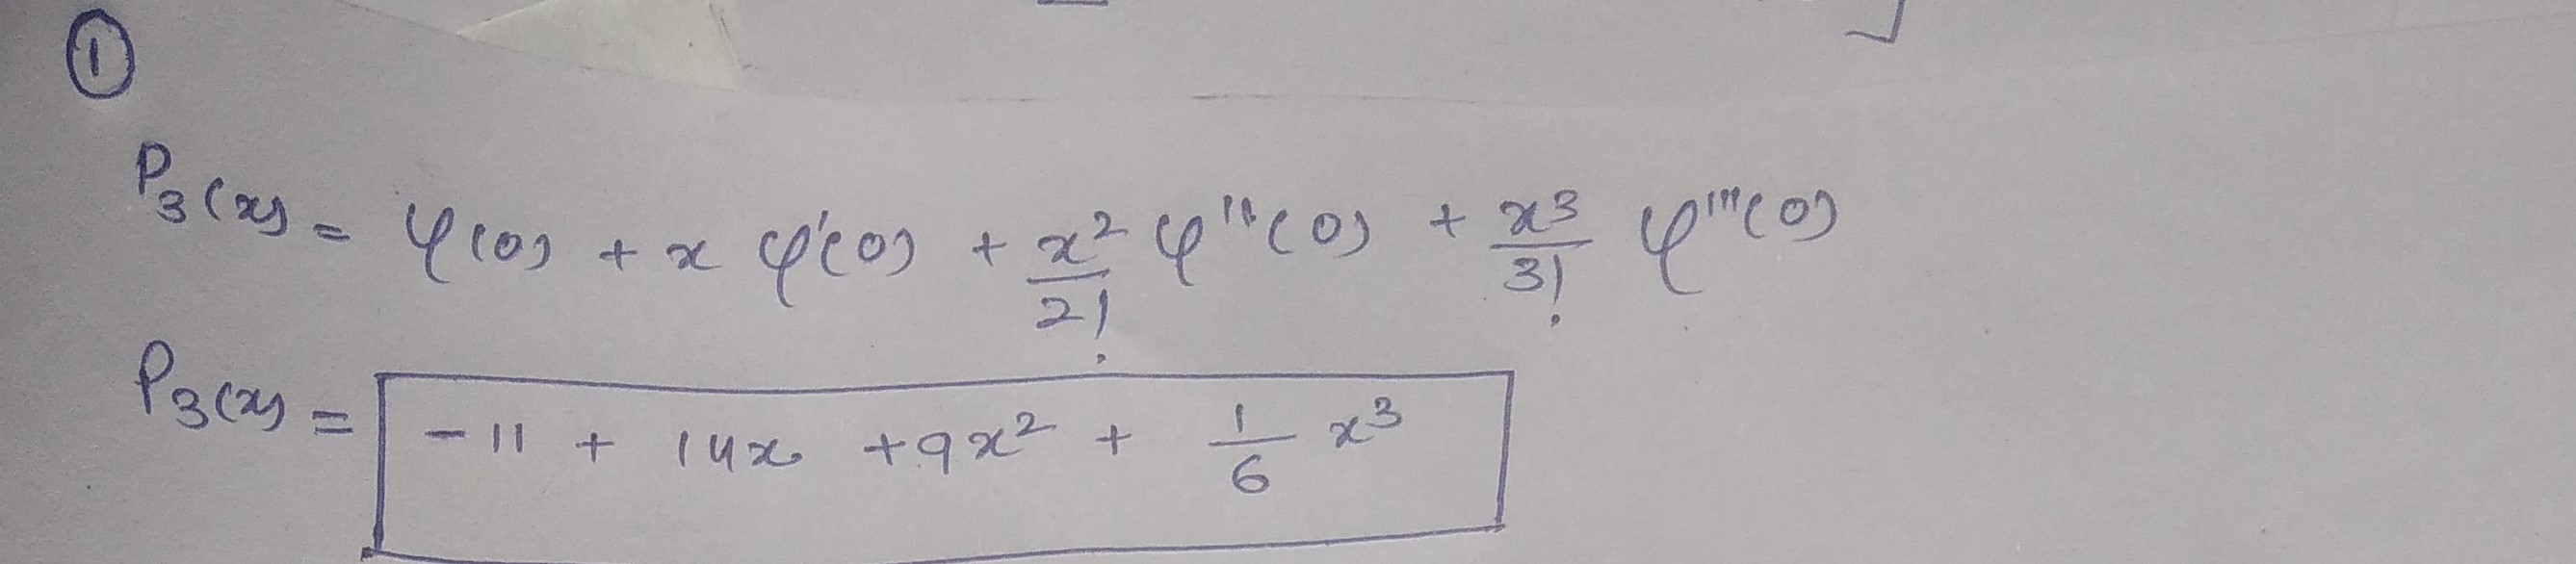 ①
P₃(x) = φ(0) + x φ'(0) + x²/2! φ''(0) + x³/3! φ'''(0)
P₃(x) = -11 + 14x + 9x² + 1/6 x³